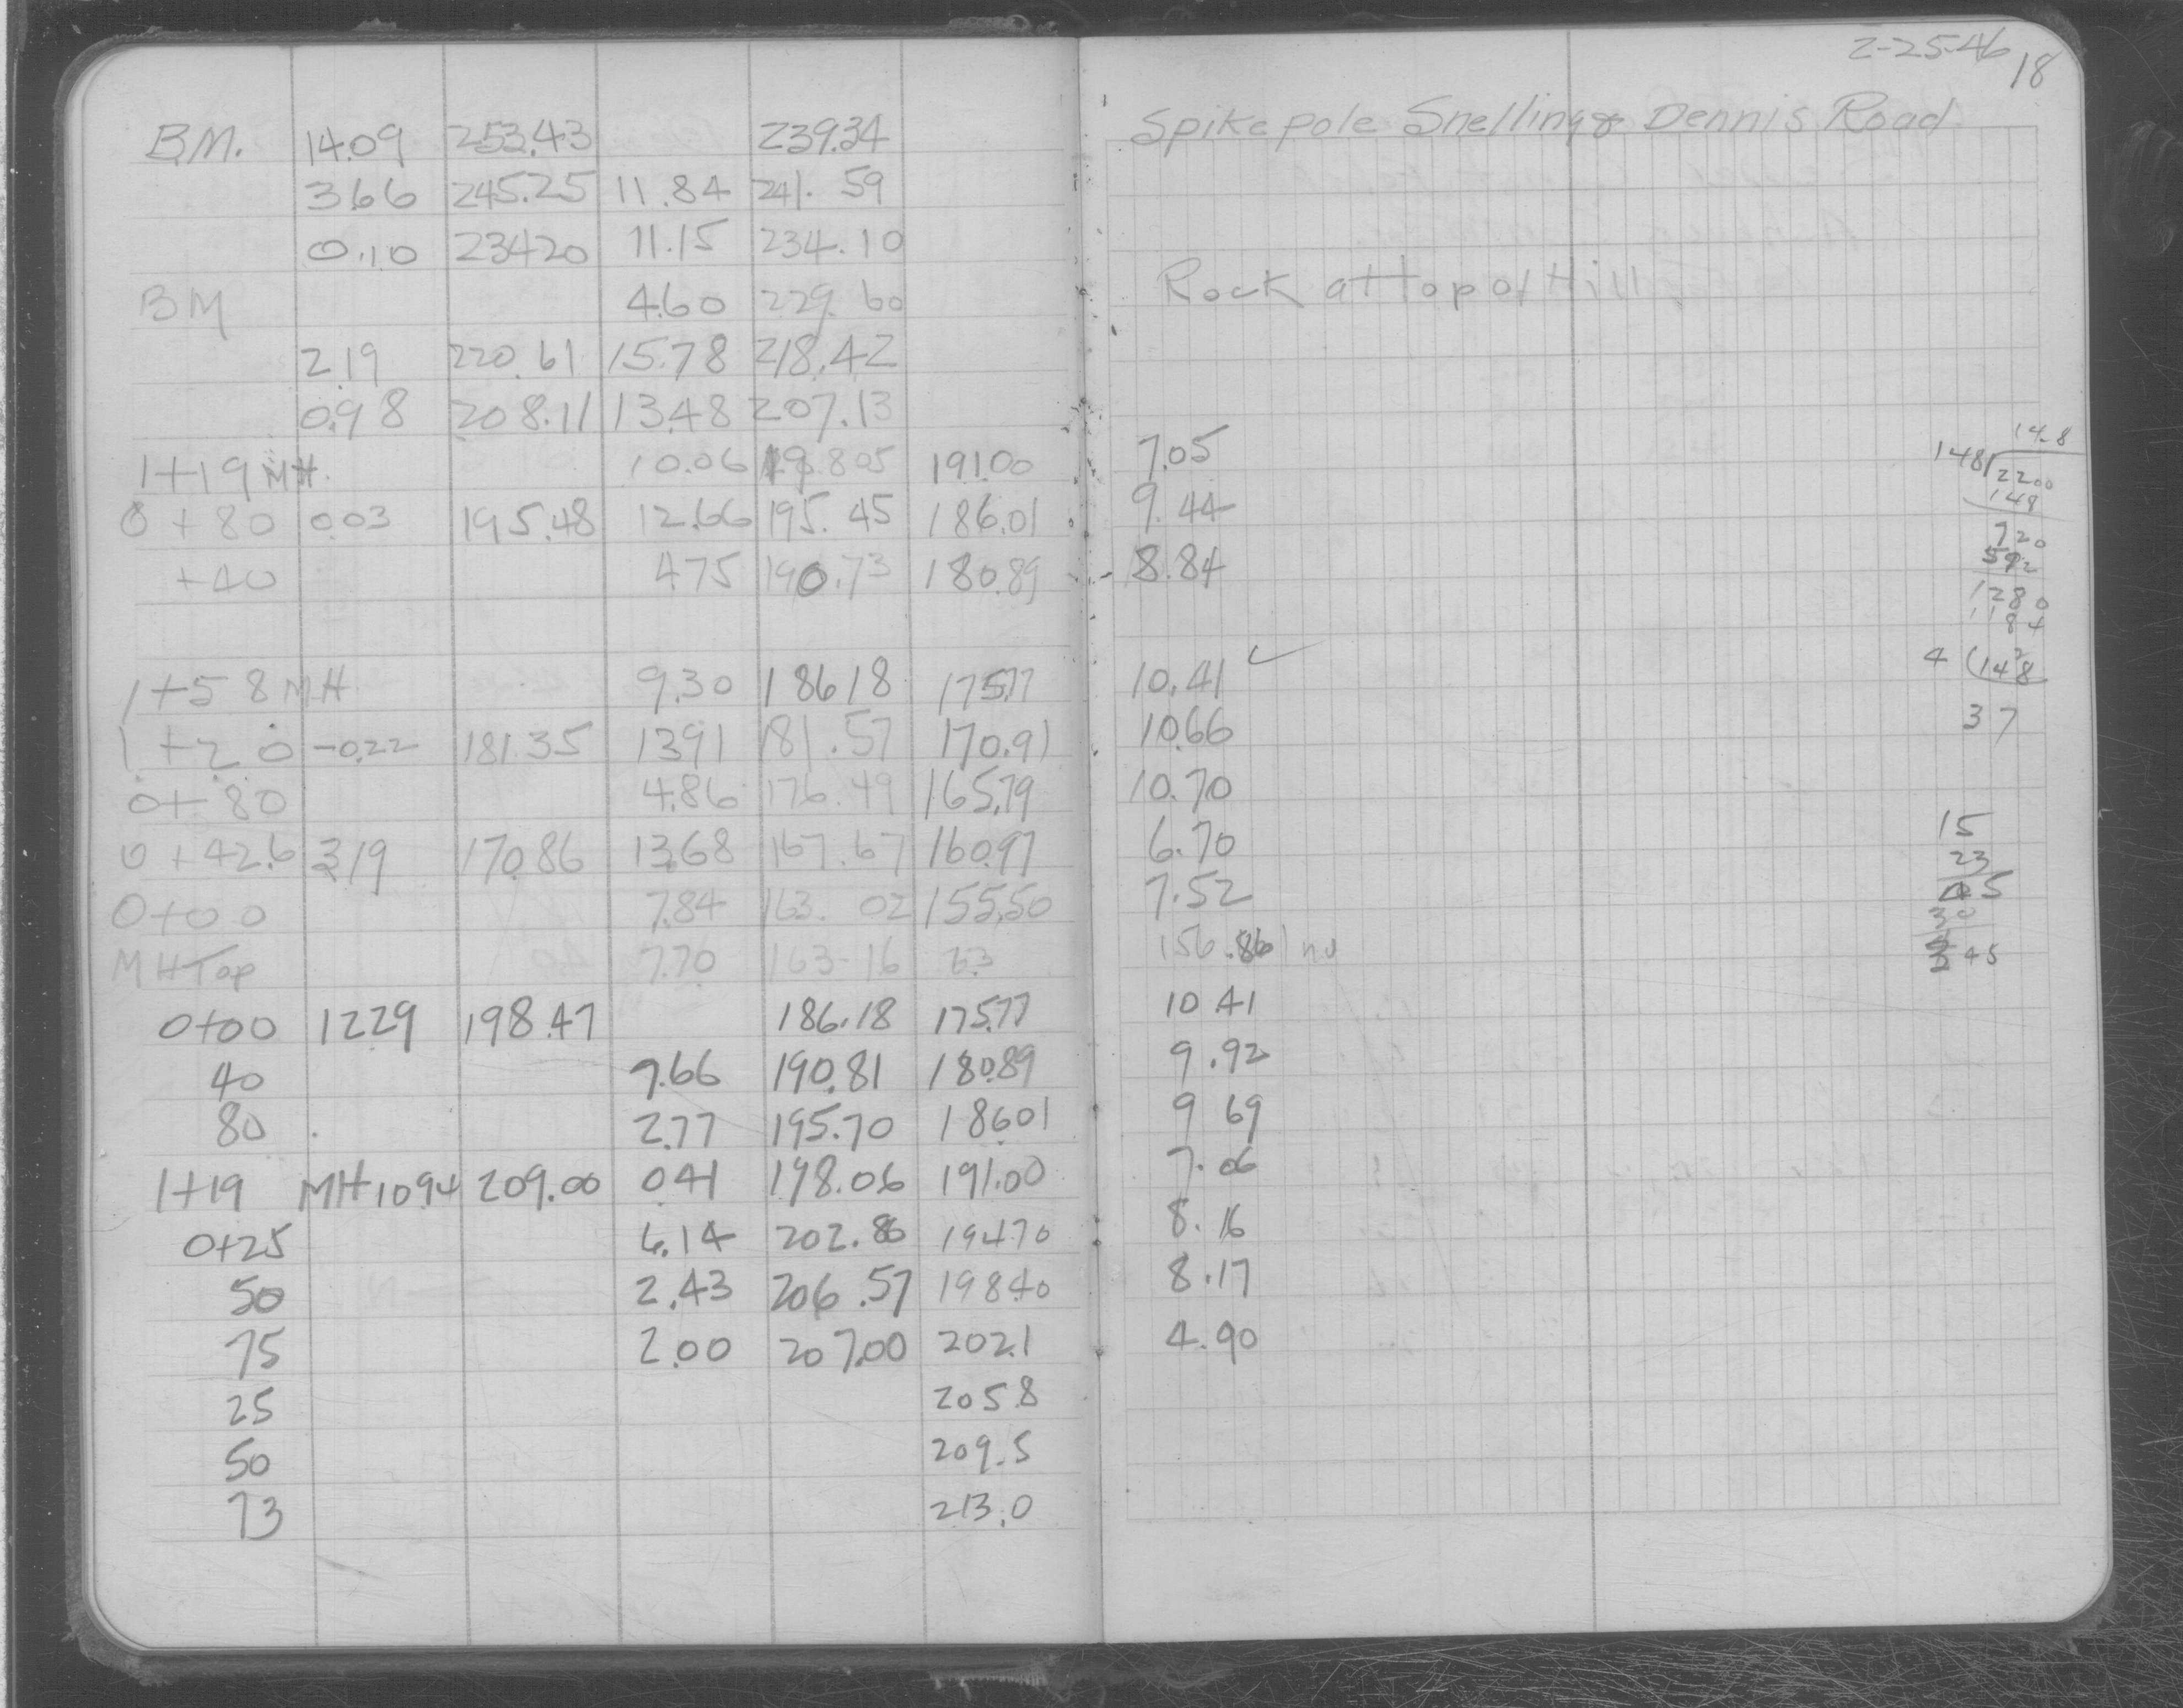 2-25-46 18
BM. 14.09 253.43 239.34 Spike pole Snelling & Dennis Road
3.66 245.25 11.84 241.59
0.10 234.20 11.15 234.10
BM 4.60 229.60 Rock at top of Hill
2.19 220.61 15.78 218.42
0.98 208.11 13.48 207.13
1+19 MH. 10.06 198.05 191.00 7.05
0+80 0.03 195.48 12.66 195.45 186.01 9.44
+40 4.75 190.73 180.89 8.84
1+58 MH 9.30 186.18 175.77 10.41 ✓
1+20 -0.22 181.35 13.91 181.57 170.91 10.66
0+80 4.86 176.49 165.79 10.70
0+42.6 3.19 170.86 13.68 167.67 160.97 6.70
0+00 7.84 163.02 155.50 7.52
MH Top 7.70 163.16 6.3 156.86 no
0+00 12.29 198.47 186.18 175.77 10.41
40 7.66 190.81 180.89 9.92
80 2.77 195.70 186.01 9.69
1+19 MH 10.94 209.00 0.41 198.06 191.00 7.06
0+25 6.14 202.86 194.70 8.16
50 2.43 206.57 198.40 8.17
75 2.00 207.00 202.1 4.90
25 205.8
50 209.5
73 213.0
14.8
148 2200
148
720
592
1280
1184
4 148
37
15
23
45
30